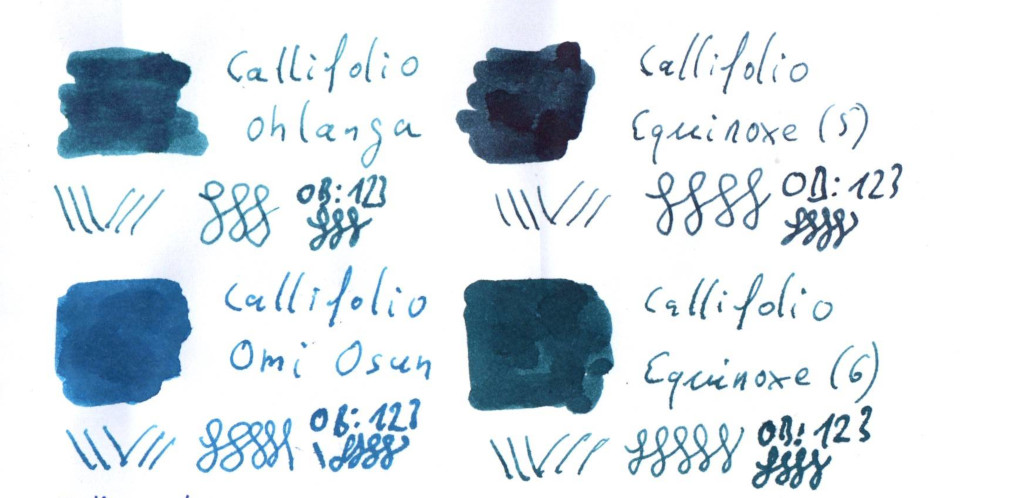 Callifolio
Ohlanga
OB: 123
Callifolio
Equinoxe (5)
OB: 123
Callifolio
Omi Osun
OB: 123
Callifolio
Equinoxe (6)
OB: 123